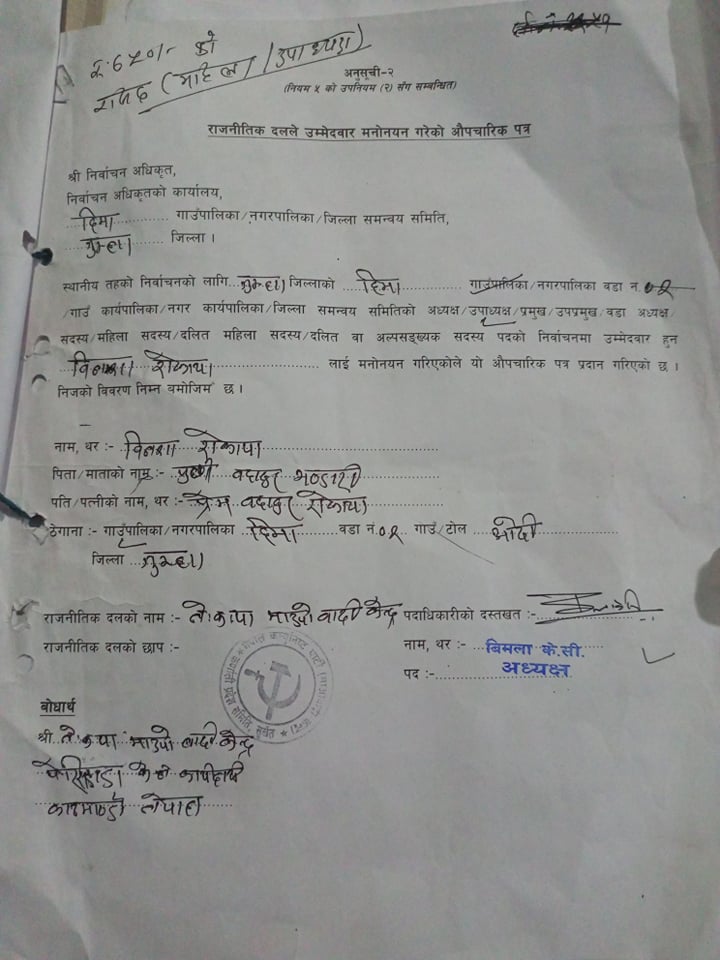 रु. ६५०/- को
रसिद (महिला/उपाध्यक्ष)
अनुसूची-२
(नियम ५ को उपनियम (२) सँग सम्बन्धित)
राजनीतिक दलले उम्मेदवार मनोनयन गरेको औपचारिक पत्र
श्री निर्वाचन अधिकृत,
निर्वाचन अधिकृतको कार्यालय,
हिमा गाउँपालिका/नगरपालिका/जिल्ला समन्वय समिति,
जुम्ला जिल्ला ।
स्थानीय तहको निर्वाचनको लागि जुम्ला जिल्लाको हिमा गाउँपालिका/नगरपालिका वडा नं.
/गाउँ कार्यपालिका/नगर कार्यपालिका/जिल्ला समन्वय समितिको अध्यक्ष/उपाध्यक्ष/प्रमुख/उपप्रमुख/वडा अध्यक्ष/
सदस्य/महिला सदस्य/दलित महिला सदस्य/दलित वा अल्पसङ्ख्यक सदस्य पदको निर्वाचनमा उम्मेदवार हुन
रोकाया लाई मनोनयन गरिएकोले यो औपचारिक पत्र प्रदान गरिएको छ ।
निजको विवरण निम्न बमोजिम छ ।
नाम, थर :- रोकाया
पिता/माताको नाम :- बहादुर भण्डारी
पति/पत्नीको नाम, थर :- प्रेम बहादुर रोकाया
ठेगाना :- गाउँपालिका/नगरपालिका हिमा वडा नं. गाउँ/टोल
जिल्ला जुम्ला
राजनीतिक दलको नाम :- ने.क.पा माओवादी केन्द्र पदाधिकारीको दस्तखत :-
राजनीतिक दलको छाप :-
नेपाल कम्युनिष्ट पार्टी (माओवादी केन्द्र) कर्णाली प्रदेश समिति, सुर्खेत
नाम, थर :- बिमला के.सी.
पद :- अध्यक्ष
बोधार्थ
श्री ने.क.पा माओवादी केन्द्र
पेरिसडाँडा केन्द्रीय कार्यालय
काठमाण्डौ नेपाल